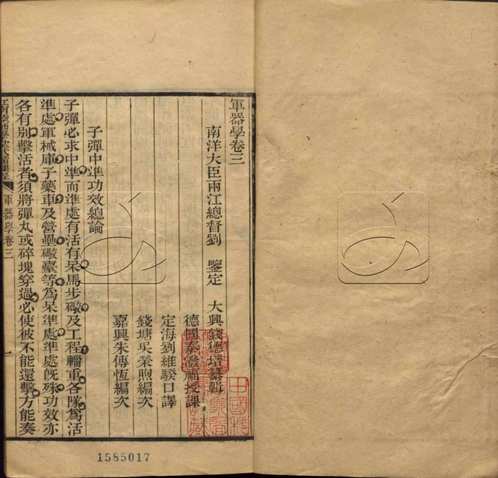 軍器學卷三
南洋大臣兩江總督劉 鑒定
大興錢德培纂輯
德國泰徹爾授課
定海劉維驥口譯
錢塘吳榮煦編次
嘉興朱傳恆編次
子彈中準功效總論
子彈必求中準而準處有活有呆馬步礮及工程輜重各隊為活
準處軍械庫子藥車及營壘礮臺等為呆準處準處既殊功效亦
各有別擊活者須將彈丸或碎塊穿過必使彼不能還擊方能奏
軍器學卷三
1585017